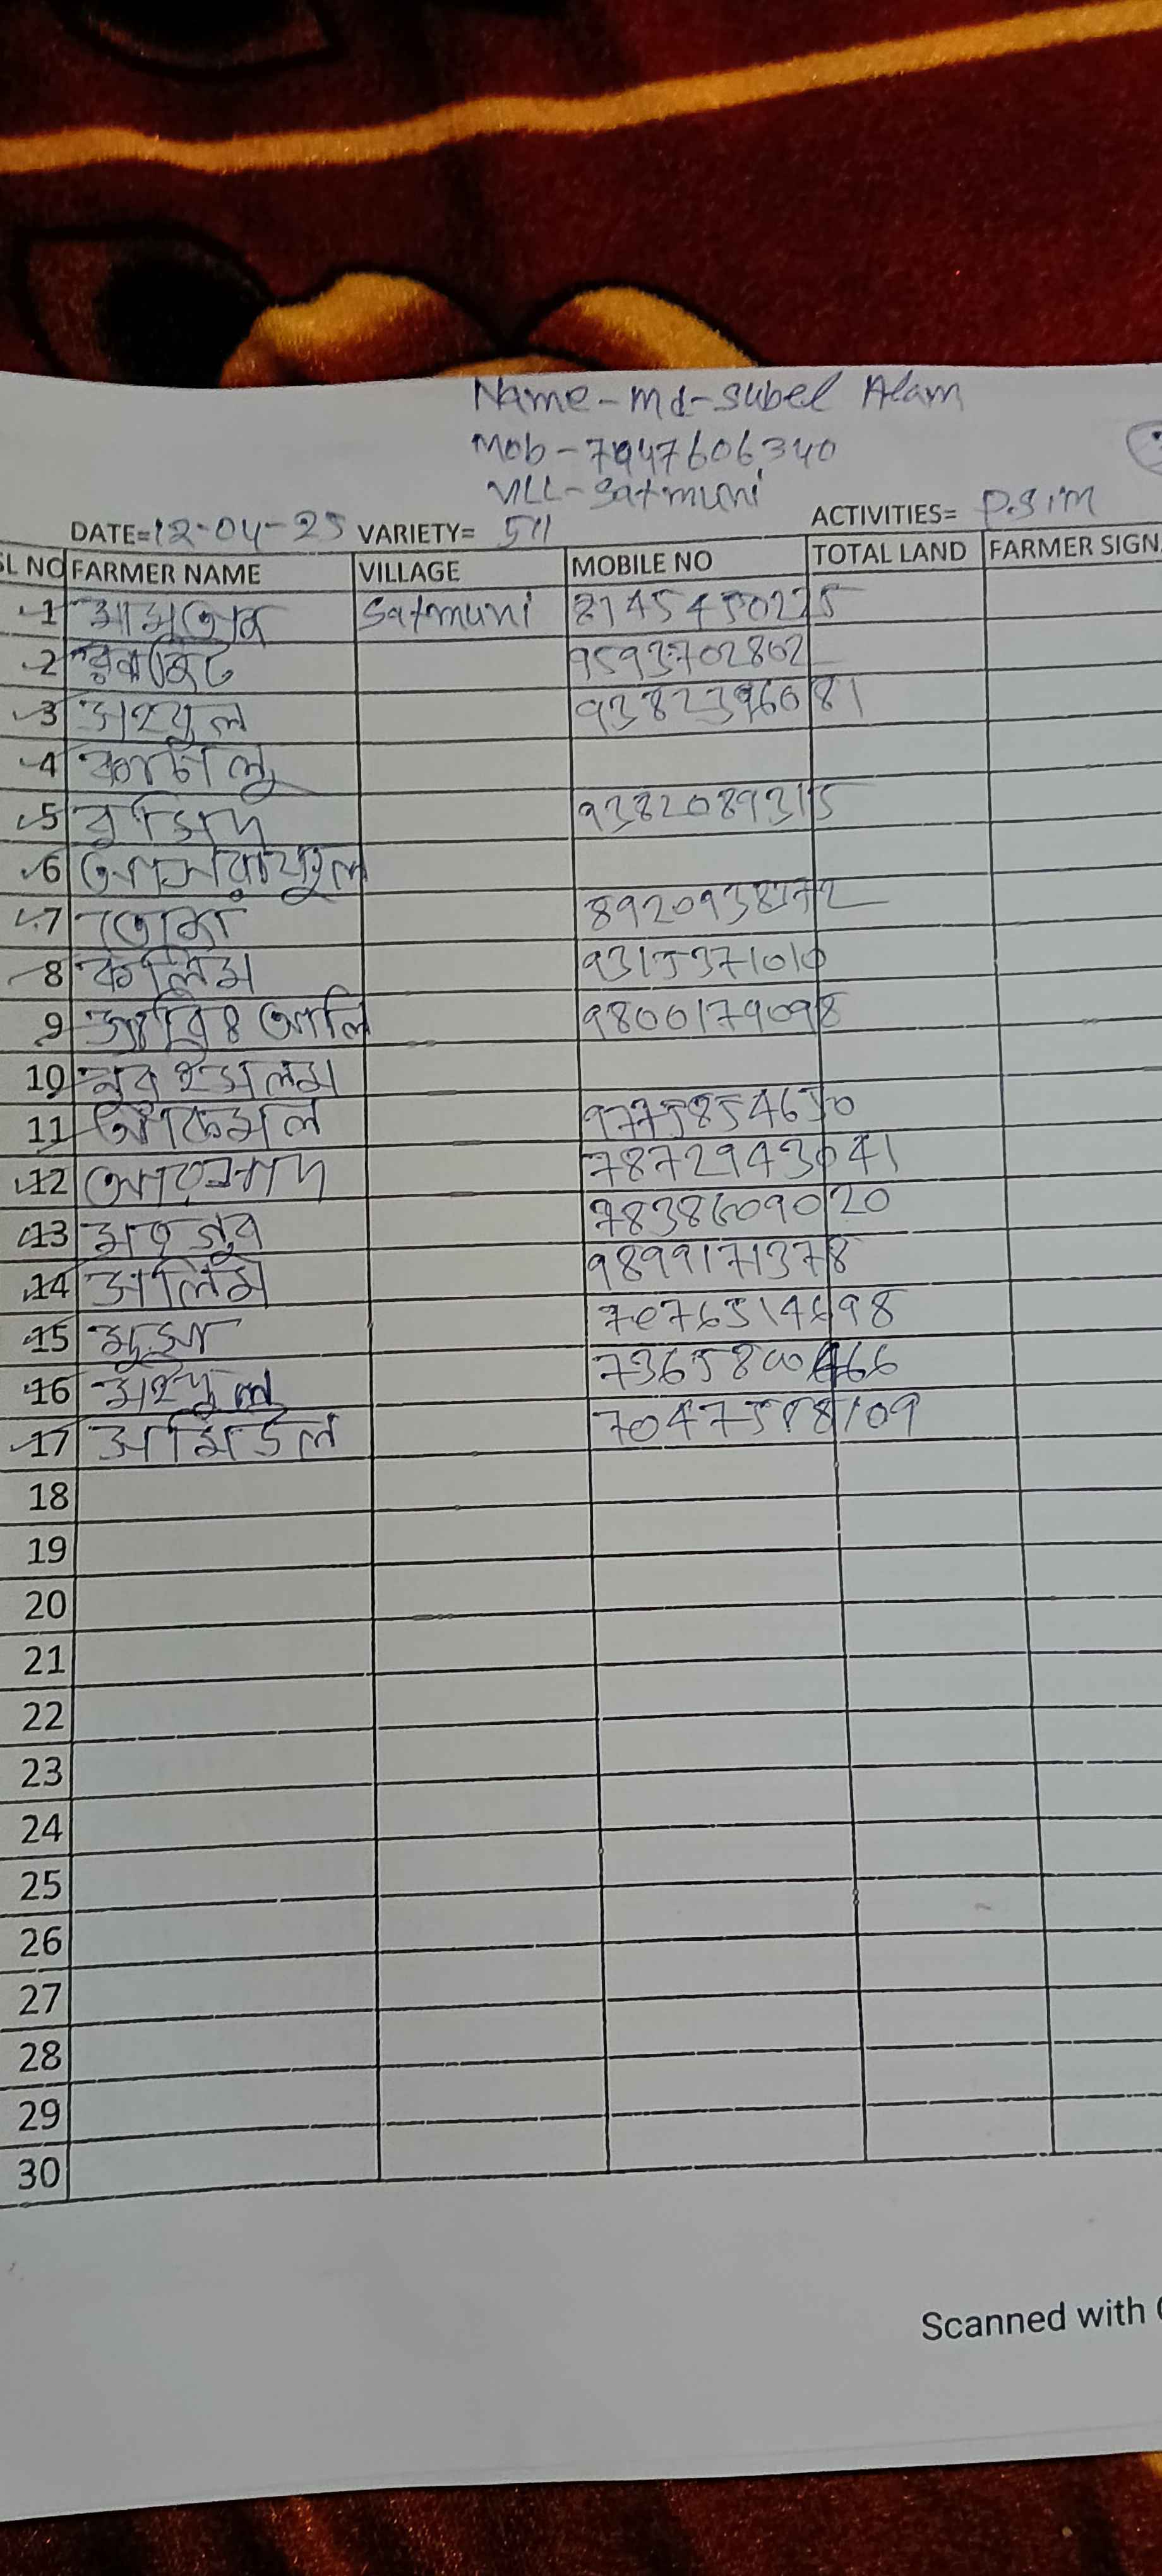 Name - Md - Subel Alam
Mob - 7947606340
Vill - Satmuni
DATE=12-04-25 VARIETY= 511 ACTIVITIES= P.S.I.M
SL NO FARMER NAME VILLAGE MOBILE NO TOTAL LAND FARMER SIGN
1 Satmuni
2 9593702802
3 সহবুল 9382396081
4
5 9382089315
6
7 8920938772
8 কলিম 9315371010
9 আলি 9800179098
10 নুর ইসলাম
11 আকমল 9775854650
12 7872943041
13 7838609020
14 সলিম 9899171378
15 মুসা 7076514698
16 7365800466
17 7047588109
18
19
20
21
22
23
24
25
26
27
28
29
30
Scanned with